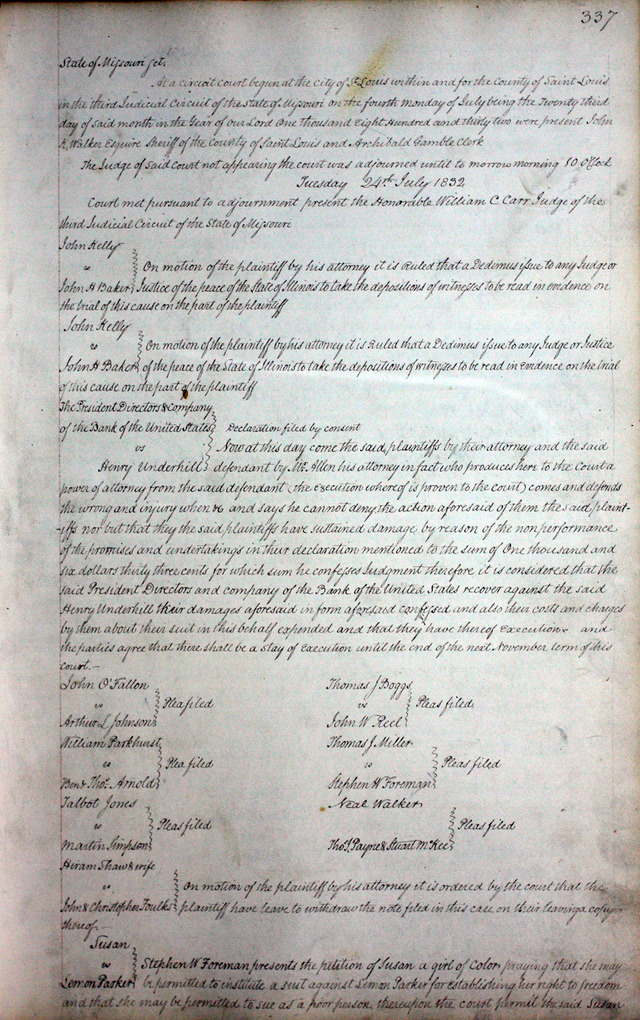 337
State of Missouri sct.
At a circuit court begun at the City of St Louis within and for the County of Saint Louis
in the third Judicial Circuit of the State of Missouri on the fourth Monday of July being the Twenty third
day of said month in the Year of our Lord One Thousand Eight Hundred and thirty two were present John
K. Walker Esquire Sheriff of the County of Saint Louis and Archibald Gamble Clerk
The Judge of Said Court not appearing the court was adjourned until to morrow morning 10 O'Clock
Tuesday 24th July 1832
Court met pursuant to adjournment present the Honorable William C Carr Judge of the
third Judicial Circuit of the State of Missouri
John Kelly
vs On motion of the plaintiff by his attorney it is Ruled that a Dedimus issue to any Judge or
John H Baker Justice of the peace of the State of Illinois to take the depositions of witnesses to be read in evidence on
the trial of this cause on the part of the plaintiff
John Kelly
vs On motion of the plaintiff by his attorney it is Ruled that a Dedimus issue to any Judge or Justice
John H Baker of the peace of the State of Illinois to take the depositions of witnesses to be read in Evidence on the trial
of this cause on the part of the plaintiff
The President Directors & Company
of the Bank of the United States Declaration filed by consent
vs Now at this day come the said plaintiffs by their attorney and the said
Henry Underhill defendant by Mr. Allen his attorney in fact who produces here to the Court a
power of attorney from the said defendant (the execution whereof is proven to the court) comes and defends
the wrong and injury when &c and says he cannot deny the action aforesaid of them the said plaint-
-iffs nor but that they the said plaintiffs have sustained damage by reason of the nonperformance
of the promises and undertakings in their declaration mentioned to the sum of One thousand and
six dollars thirty three cents for which sum he confesses Judgment therefore it is considered that the
said President Directors and company of the Bank of the United States recover against the said
Henry Underhill their damages aforesaid in form aforesaid confessed and also their costs and charges
by them about their suit in this behalf expended and that they have thereof execution and
the parties agree that there shall be a stay of execution until the end of the next November term of this
court.-
John O'Fallon Thomas J Boggs
vs Plea filed vs Pleas filed
Arthur L Johnson John W Reel
William Parkhurst Thomas J Miller
vs Plea filed vs Pleas filed
Benn Thos. Arnold Stephen W Foreman
Talbot Jones Neal Walker
vs Pleas filed Pleas filed
Martin Simpson Thos. Payne & Stuart McKee
Hiram Shaw & wife
vs On motion of the plaintiff by his attorney it is ordered by the court that the
John & Christopher Foulks plaintiff have leave to withdraw the note filed in this case on their leaving a copy
thereof-
Susan
vs Stephen W Foreman presents the petition of Susan a girl of Color praying that she may
Lemon Parker be permitted to institute a suit against Lemon Parker for establishing her right to freedom
and that she may be permitted to sue as a poor person thereupon the court permit the said Susan